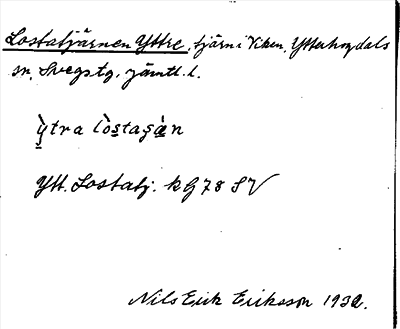 Lostatjärnen Yttre, tjärn i Viken, Ytterhogdals
sn, Svegs tg, Jämtl. l.
ỳtra lòstaṣàn
Ytt. Lostatj. kg 78 SV
Nils Erik Eriksson 1932.